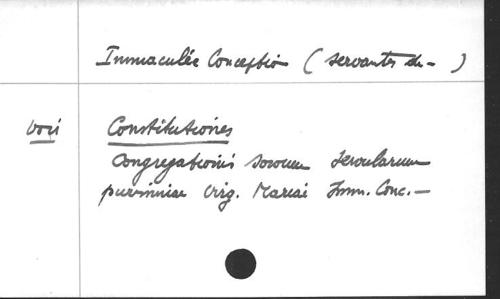 Immaculée Conception ( servantes de - )
voir Constitutiones
Congregationis sororum servularum
purissimae Virg. Mariae Imm. Conc. -